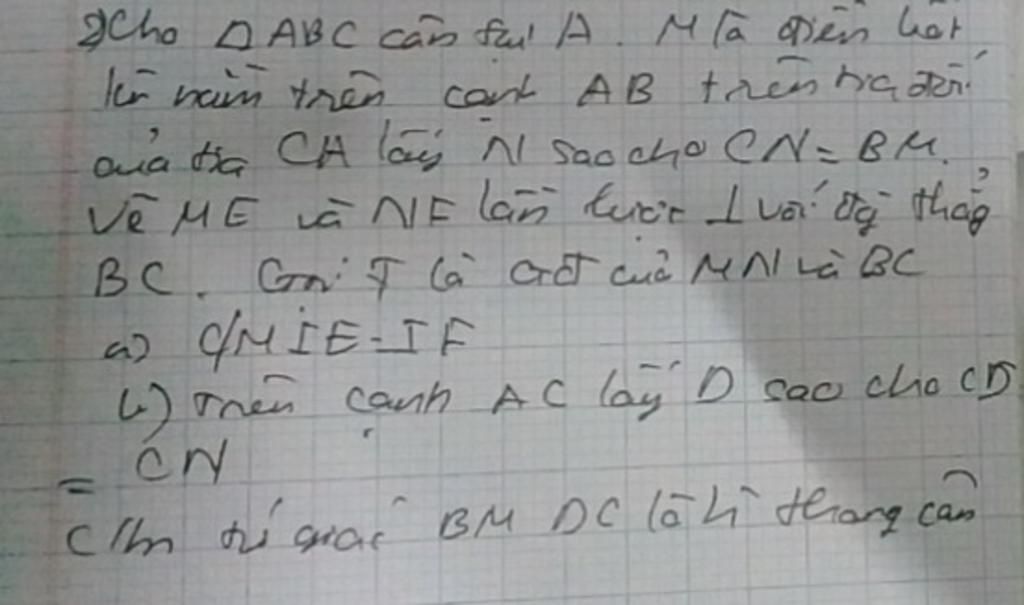 Cho △ABC cân tại A. M là điểm bất
kì nằm trên cạnh AB trên tia đối
của tia CA lấy N sao cho CN = BM.
Vẽ ME và NF lần lượt ⊥ với đg thẳg
BC. Gọi I là GĐ của MN và BC
a) C/M IE = IF
b) Trên cạnh AC lấy D sao cho CD
= CN
C/m tứ giác BMDC là h thang cân